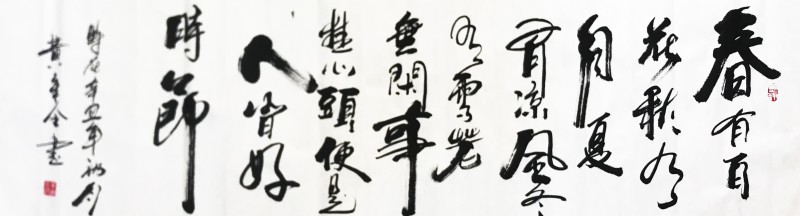 春有百
花秋有
月夏
有涼風冬
有雪若
無閑事
挂心頭便是
人間好
時節
時在辛丑年
黄書